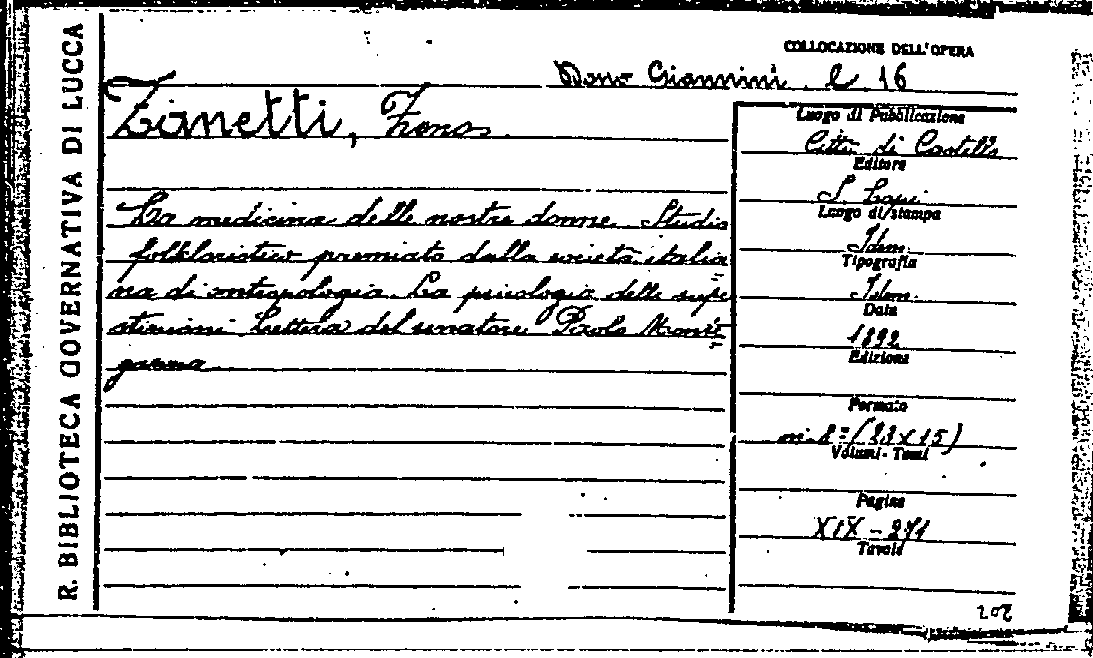 R. BIBLIOTECA GOVERNATIVA DI LUCCA
COLLOCAZIONE DELL'OPERA
Dono Giannini. l. 16
Zanetti, Zeno.
La medicina delle nostre donne. Studio
folkloristico premiato dalla società italia=
na di antropologia. La psicologia delle supe=
stizioni. Lettera del senatore Paolo Mante=
gazza
Luogo di Pubblicazione
Città di Castello
Editore
S. Lapi
Luogo di stampa
Idem.
Tipografia
Idem.
Data
1892
Edizione
Formato
in-8º (23x15)
Volumi - Tomi
Pagine
XIX - 271
Tavole